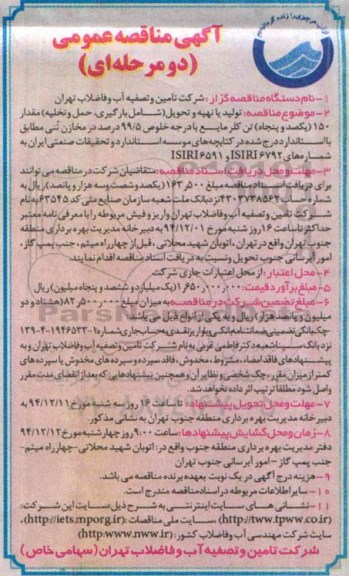 آگهی مناقصه عمومی
(دو مرحله‌ای)
۱- نام دستگاه مناقصه گزار: شرکت تامین و تصفیه آب و فاضلاب تهران
۲- موضوع مناقصه: تولید یا تهیه و تحویل (شامل بارگیری، حمل و تخلیه) مقدار
۱۵۰ (یکصد و پنجاه) تن کلر مایع با درجه خلوص ۹۹/۵ درصد در مخازن تُنی مطابق
با استاندارد درج شده در کتابچه‌های موسسه استاندارد و تحقیقات صنعتی ایران به
شماره‌های ISIRI ۶۷۹۲ و ISIRI ۶۵۹۱
۳- مهلت و محل دریافت اسناد مناقصه: متقاضیان شرکت در مناقصه می توانند
برای دریافت اسناد مناقصه مبلغ ۱۶۳٫۵۰۰ (یکصد و شصت و سه هزار و پانصد) ریال به
شماره حساب ۴۳۰۳۷۳۸۵۶۲ نزد بانک ملت شعبه سازمان صنایع ملی کد ۶۳۵۴۵ به نام
شرکت تامین و تصفیه آب و فاضلاب تهران واریز و فیش مربوطه را با معرفی نامه معتبر
حداکثر تا ساعت ۱۶ روز شنبه مورخ ۹۴/۱۲/۰۱ به دبیرخانه مدیریت بهره برداری منطقه
جنوب تهران واقع در تهران، اتوبان شهید محلاتی، قبل از چهارراه میثم، جنب پمپ گاز،
امور آبرسانی جنوب تحویل و نسبت به دریافت اسناد مناقصه اقدام نمایند.
۴- محل اعتبار: از محل اعتبارات جاری شرکت
۵- مبلغ برآورد قیمت: ۱٫۶۵۰٫۰۰۰٫۰۰۰ (یک میلیارد و ششصد و پنجاه میلیون) ریال
۶- مبلغ تضمین شرکت در مناقصه: به میزان مبلغ ۸۲٫۵۰۰٫۰۰۰ (هشتاد و دو
میلیون و پانصد هزار) ریال و به یکی از انواع ذیل می باشد:
چک بانکی تضمینی، ضمانتنامه بانکی و یا واریز نقدی به حساب جاری شماره ۱-۱۹۴۶۵۳۳-۴-۱۳۹
نزد بانک سینا شعبه دکتر فاطمی غربی به نام شرکت تامین و تصفیه آب و فاضلاب تهران و به
پیشنهادهای فاقد امضاء، مشروط، مخدوش، فاقد سپرده و سپرده های مخدوش یا سپرده های
کمتر از میزان مقرر، چک شخصی و نظایر آن و همچنین پیشنهادهایی که بعد از انقضای مدت مقرر
واصل شود مطلقا ترتیب اثر داده نخواهد شد.
۷- مهلت و محل تحویل پیشنهاد: تا ساعت ۱۶ روز سه شنبه مورخ ۹۴/۱۲/۱۱ به
دبیرخانه مدیریت بهره برداری منطقه جنوب تهران به نشانی مذکور.
۸- زمان و محل گشایش پیشنهادها: ساعت ۹:۰۰ روز چهارشنبه مورخ ۹۴/۱۲/۱۲
دفتر مدیریت بهره برداری منطقه جنوب واقع در: اتوبان شهید محلاتی-چهارراه میثم-
جنب پمپ گاز - امور آبرسانی جنوب تهران
۹- هزینه درج آگهی در یک نوبت بعهده برنده مناقصه می باشد.
۱۰- سایر اطلاعات مربوطه در اسناد مناقصه مندرج است.
۱۱- نشانی های سایت اینترنتی به شرح ذیل: سایت این شرکت:
(http://www.tpww.co.ir)، سایت ملی مناقصات: (http://iets.mporg.ir)،
سایت شرکت مهندسی آب و فاضلاب کشور: (http:www.nww.ir)
شرکت تامین و تصفیه آب و فاضلاب تهران (سهامی خاص)